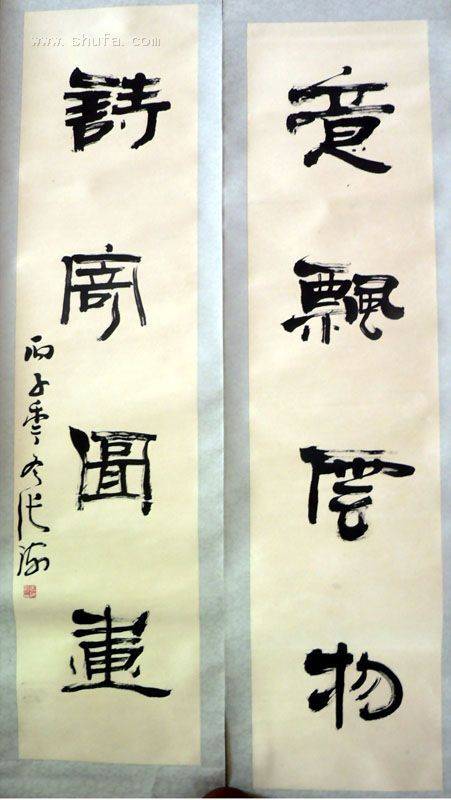 www.shufa.com
意飄雲物
詩商圖畫
丙子季冬張